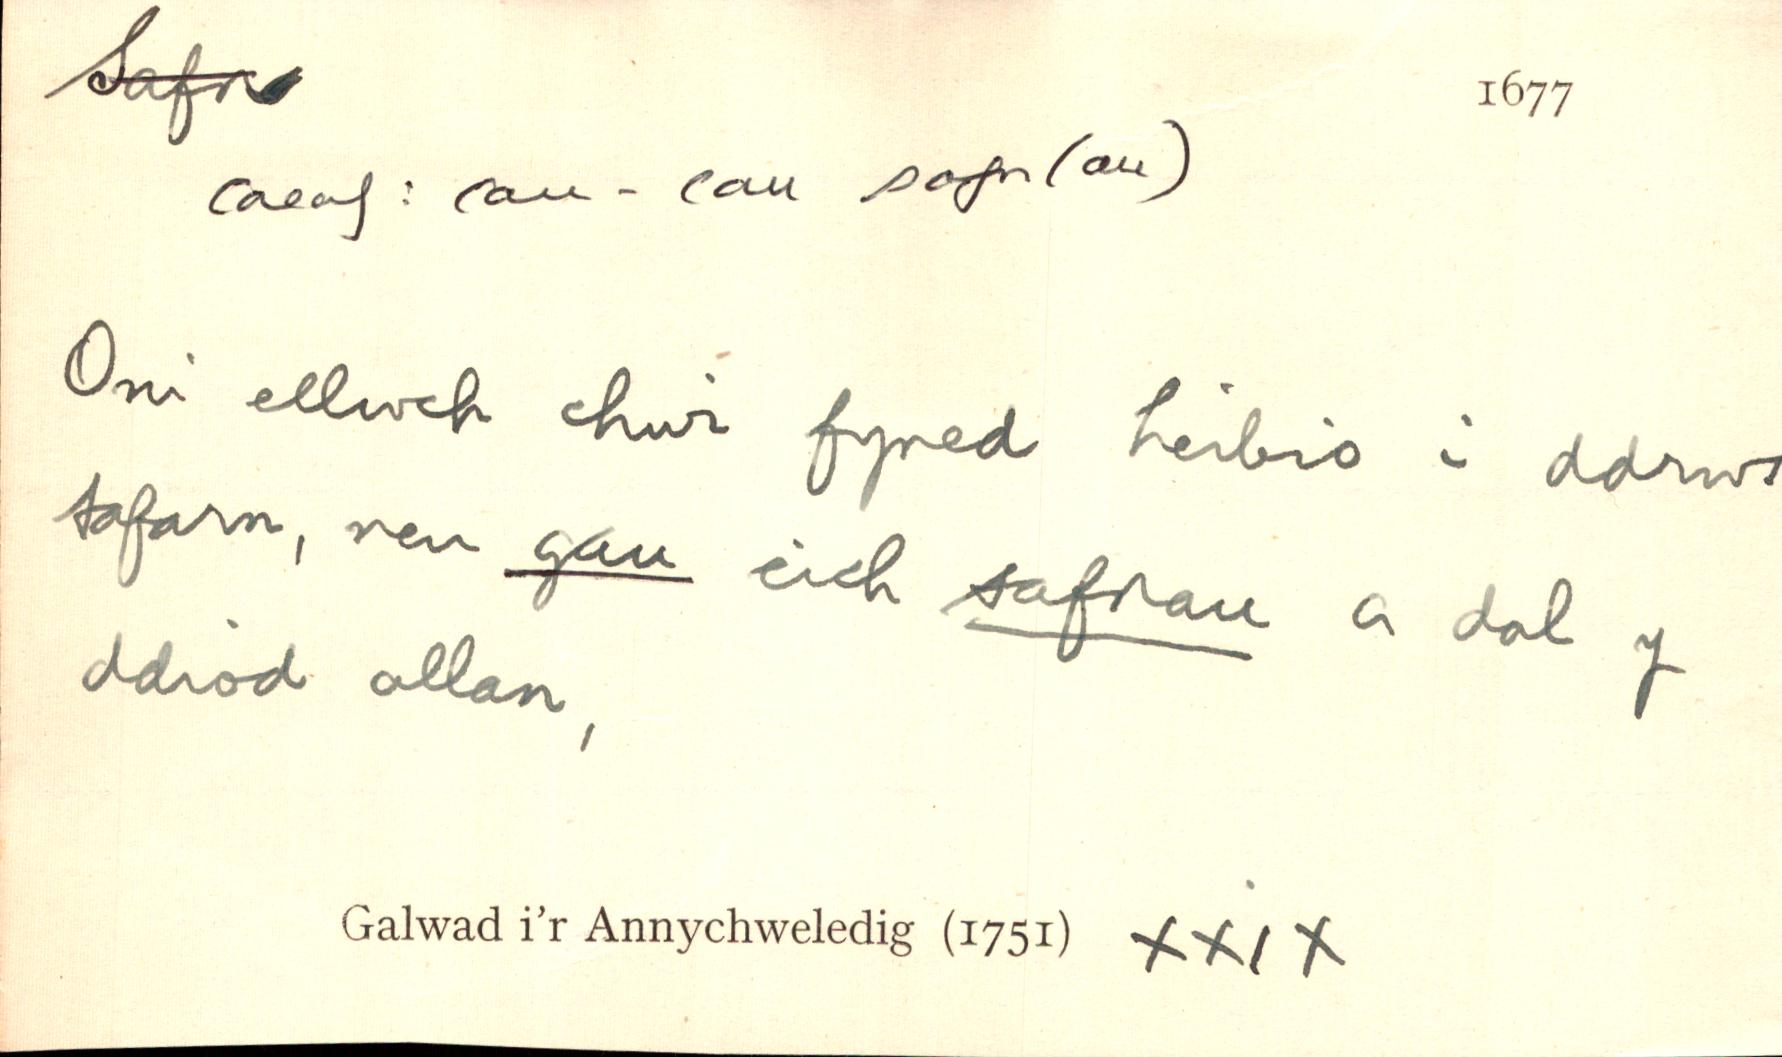 Safn
1677
caeaf: cau - cau safn(au)
Oni ellwch chwi fyned heibio i ddrws
tafarn, neu gau eich safnau a dal y
ddiod allan,
Galwad i'r Annychweledig (1751) XXIX